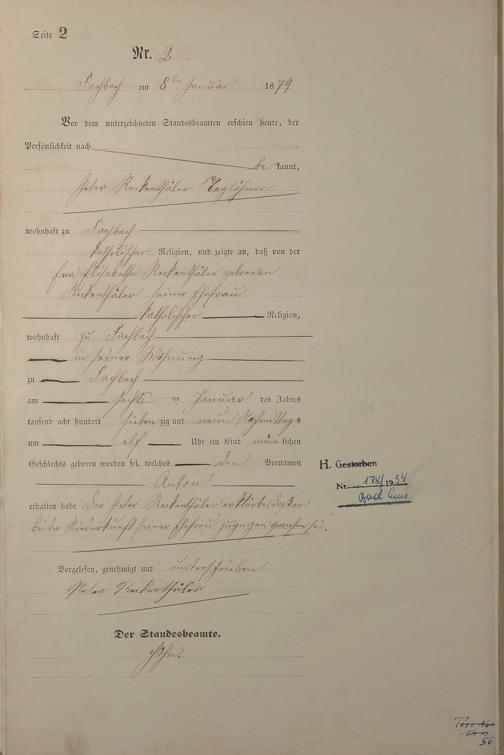 Seite 2
Nr. 2
Fachbach am 8ten Januar 1879
Vor dem unterzeichneten Standesbeamten erschien heute, der
Persönlichkeit nach
be kannt,
Peter Reckenthäler Taglöhner
wohnhaft zu Fachbach
katholischer Religion, und zeigte an, daß von der
Frau Elisabetha Reckenthäler geborenen
Reckenthäler seiner Ehefrau
katholischer Religion,
wohnhaft zu Fachbach
in seiner Wohnung
zu Fachbach
am sechs ten Januar des Jahres
tausend acht hundert sieben zig und neun Nachmittags
um elf Uhr ein Kind männ lichen
Geschlechts geboren worden sei, welches den Vornamen
Anton
erhalten habe Der Peter Reckenthäler erklärte, daß er
bei der Niederkunft seiner Ehefrau zugegen gewesen sei.
Vorgelesen, genehmigt und unterschrieben
Peter Reckenthäler
Der Standesbeamte.
H. Gestorben
Nr. 178/1954
Bad Ems
56